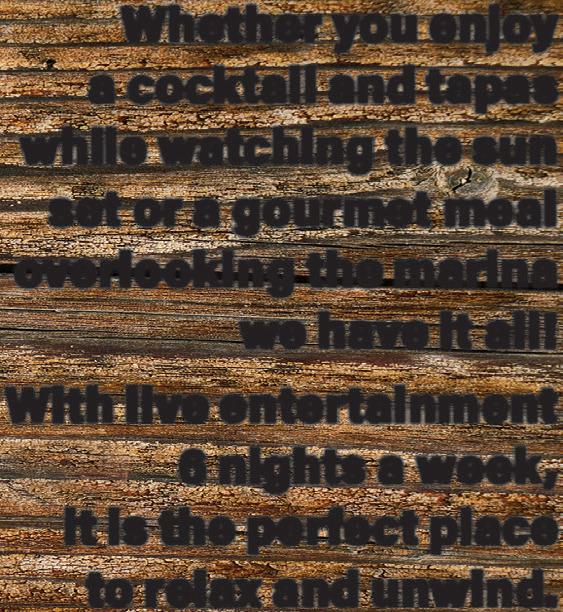 Whether you enjoy
a cocktail and tapas
while watching the sun
set or a gourmet meal
overlooking the marina
we have it all!
With live entertainment
6 nights a week,
it is the perfect place
to relax and unwind.